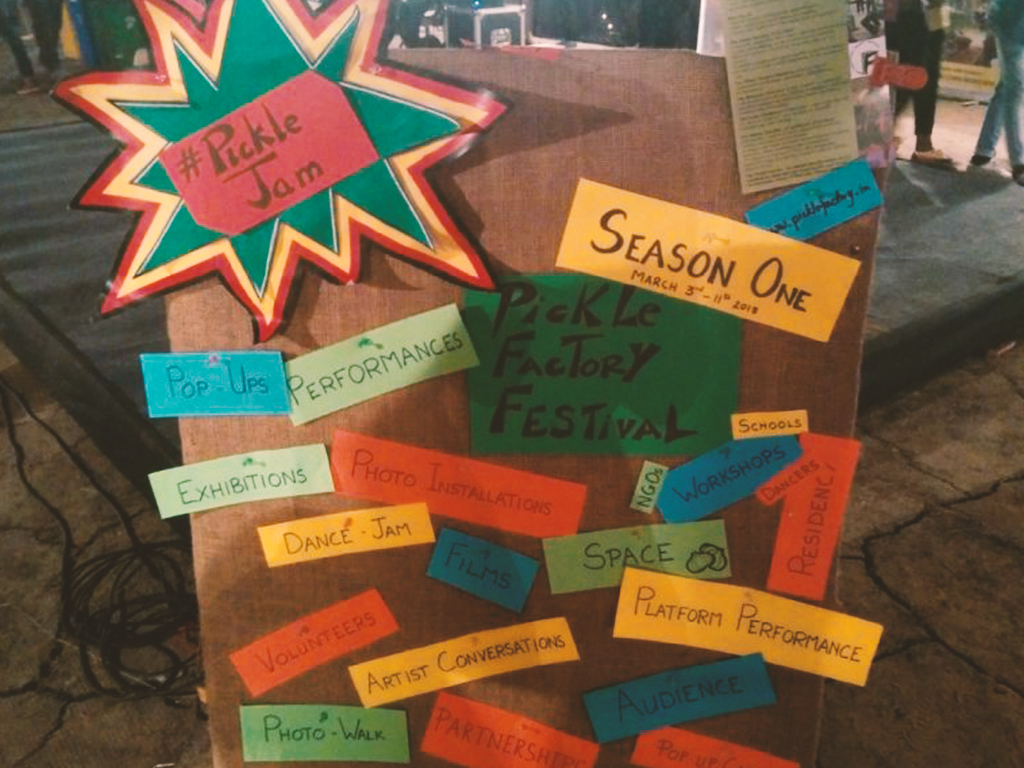 #Pickle
Jam
www.picklefactory.in
SEASON ONE
MARCH 3rd-11th 2018
PICKLE
FACTORY
FESTIVAL
POP-UPS
PERFORMANCES
SCHOOLS
WORKSHOPS
NGOs
DANCERS
RESIDENCY
EXHIBITIONS
PHOTO INSTALLATIONS
DANCE-JAM
FILMS
SPACE
VOLUNTEERS
ARTIST CONVERSATIONS
PLATFORM PERFORMANCE
AUDIENCE
PHOTO-WALK
PARTNERSHIPS
POP UP